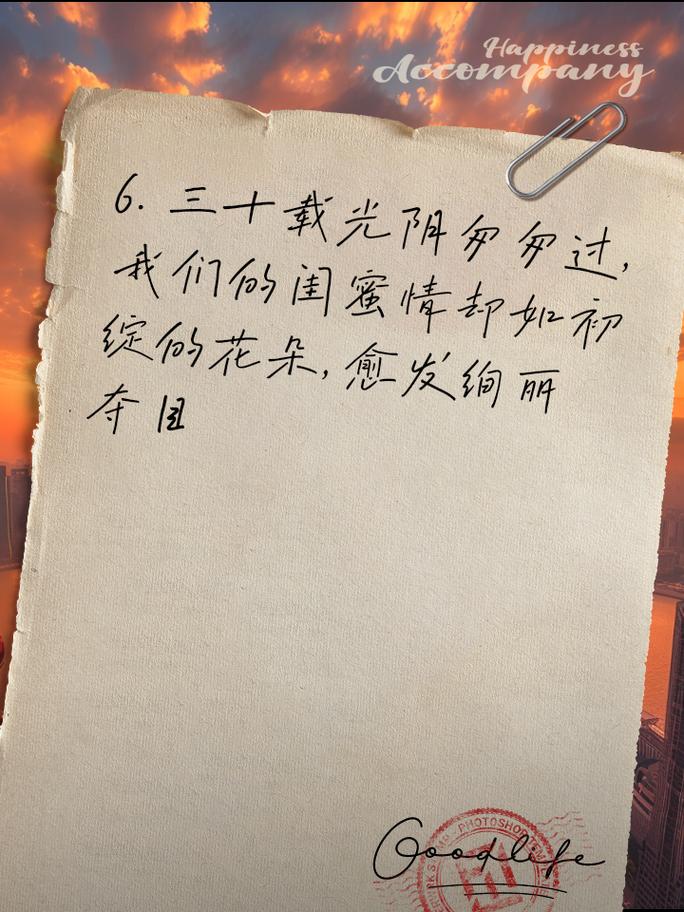 Happiness
Accompany
6. 三十载光阴匆匆过,
我们的闺蜜情却如初
绽的花朵,愈发绚丽
夺目
PHOTOSHOP
Goodlife